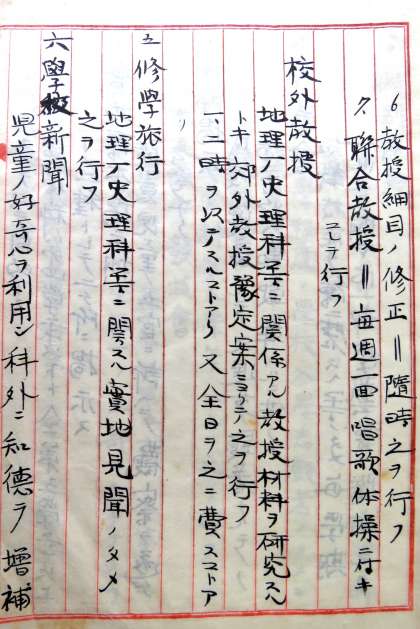 6 教授細目ノ修正=随時之ヲ行フ
7. 聯合教授=毎週一回唱歌体操ニ付キ
コレヲ行フ
校外教授
地理ノ史理科等ニ関係アル教授材料ヲ研究スル
トキ郊外教授豫定案ニヨリテ之ヲ行フ
一、二時ヲ以テスルコトアリ又全日ヲ之ニ費スコトア
リ
五 修學旅行
地理ノ史理科等ニ関スル實地見聞ノタメ
之ヲ行フ
六 學校新聞
児童ノ好奇心ヲ利用シ科外ニ知徳ヲ増補